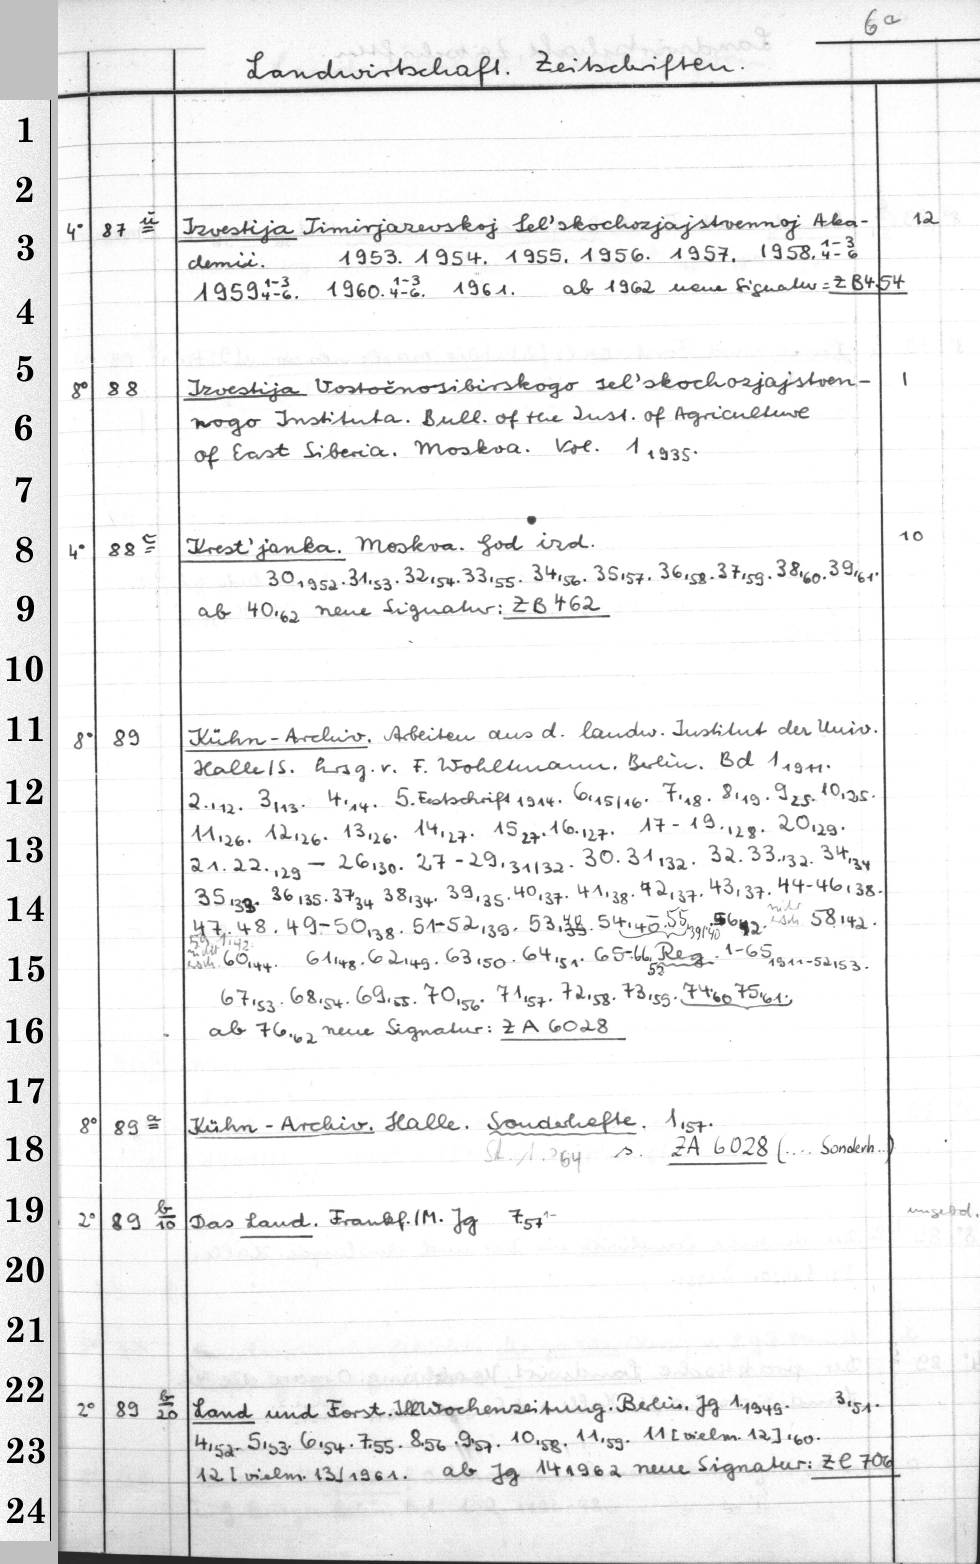 6a
Landwirtschaft. Zeitschriften.
1
2
3
4
5
6
7
8
9
10
11
12
13
14
15
16
17
18
19
20
21
22
23
24
4° 87 ü Izvestija Timirjazevskoj Sel'skochozjajstvennoj Aka- 12
demii. 1953. 1954. 1955. 1956. 1957. 1958. 1-3 4-6
1959 1-3 4-6. 1960. 1-3 4-6. 1961. ab 1962 neue Signatur = ZB 454
8° 88 Izvestija Vostočnosibirskogo sel'skochozjajstven- 1
nogo Instituta. Bull. of the Inst. of Agriculture
of East Siberia. Moskva. Vol. 1,1935.
4° 88 c Krest'janka. Moskva. God izd. 10
30,1952. 31,53. 32,54. 33,55. 34,56. 35,57. 36,58. 37,59. 38,60. 39,61.
ab 40,62 neue Signatur: ZB 462
8° 89 Kühn-Archiv. Arbeiten aus d. landw. Institut der Univ.
Halle/S. hrsg. v. F. Wohltmann. Berlin. Bd 1,1911.
2.,12. 3,13. 4,14. 5. Festschrift 1914. 6,15/16. 7,18. 8,19. 9,25. 10,25.
11,26. 12,26. 13,26. 14,27. 15,27. 16.,127. 17-19.,28. 20,29.
21. 22.,29 - 26,30. 27-29,31/32. 30. 31,32. 32. 33.,32. 34,34
35,33. 36,35. 37,34 38,34. 39,35. 40,37. 41,38. 42,37. 43,37. 44-46,38.
47. 48. 49-50,38. 51-52,39. 53, 54,40- 55,39/40 56,42. nicht ersch. 58,42.
59,1.42. nicht ersch. 60,44. 61,48. 62,49. 63,50. 64,51. 65-66,52 Reg. 1-65,1911-52,53.
67,53. 68,54. 69,55. 70,56. 71,57. 72,58. 73,59. 74,60 75,61.
ab 76,62 neue Signatur: ZA 6028
8° 89 a Kühn-Archiv. Halle. Sonderhefte. 1,57.
s. ZA 6028 (.... Sonderh..)
2° 89 b/10 Das Land. Frankf./M. Jg 7,57- ungebd.
2° 89 b/20 Land und Forst. Ill. Wochenzeitung. Berlin. Jg 1,1949. 3,51.
4,52. 5,53. 6,54. 7,55. 8,56. 9,57. 10,58. 11,59. 11 [vielm. 12],60.
12 [vielm. 13] 1961. ab Jg 14,1962 neue Signatur: ZC 706